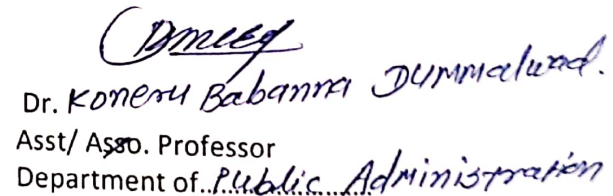 Dr. Koneru Babanna Dummalwad.
Asst/ Asso. Professor
Department of Public Administration